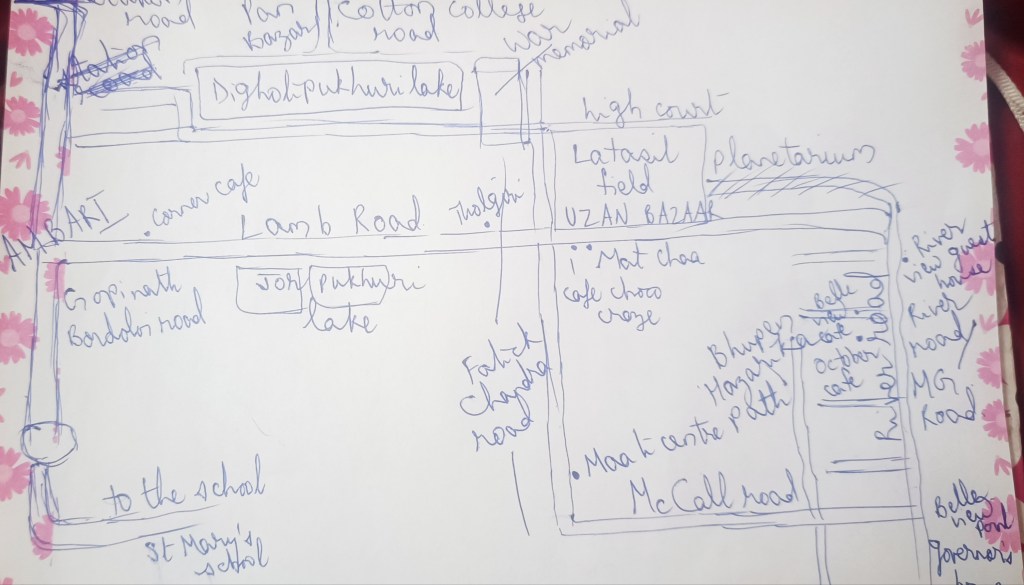 road
Pan
Bazar
Cotton college
road
War
memorial
Station
road
Digholipukhuri lake
high court
Latasil
field
Planetarium
UZAN BAZAAR
AMBARI
corner cafe
Lamb Road
River
view guest
house
Mat Chaa
cafe choco
craze
Gopinath
Bordoloi road
JOR pukhuri
lake
Fatick
Chandra
road
Bhupen
Hazarika
Path
Belle
view
cafe
October
cafe
River road
River
road
MG
Road
Maati centre
McCall road
to the school
St Mary's
school
Belle
view
point
Governor's